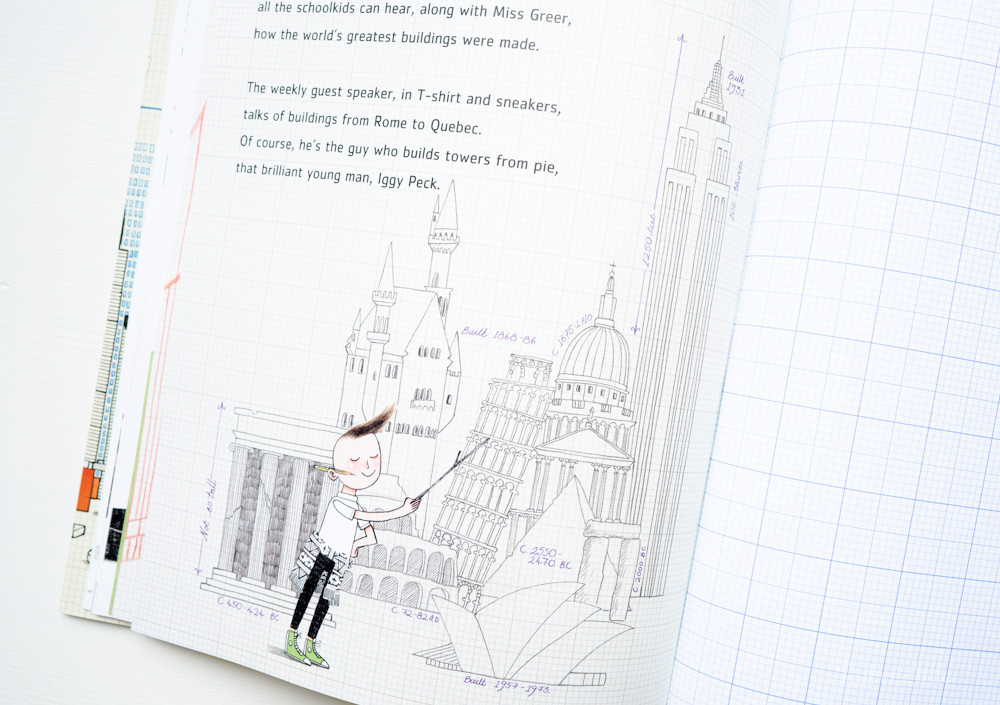 all the schoolkids can hear, along with Miss Greer,
how the world's greatest buildings were made.
The weekly guest speaker, in T-shirt and sneakers,
talks of buildings from Rome to Quebec.
Of course, he's the guy who builds towers from pie,
that brilliant young man, Iggy Peck.
Built
1931
102 Stories
1250 feet
Built 1868-86
C 1675-1710
Not so tall
C 2550-
2470 BC
C 2000 BC
C 450-424 BC
C 72-82AD
Built 1957-1973